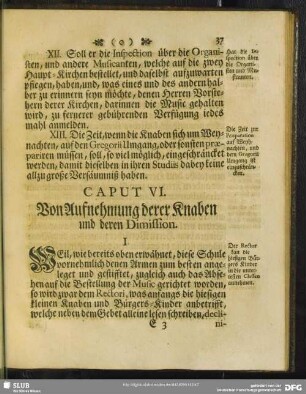 (0) 37
XII. Soll er die Inspection über die Organi-
sten, und andere Musicanten, welche auf die zwey
Haupt-Kirchen bestellet, und daselbst aufzuwarten
pflegen, haben, und, was eines und des andern hal-
ber zu erinnern seyn möchte, denen Herren Vorste-
hern derer Kirchen, darinnen die Music gehalten
wird, zu fernerer gebührenden Verfügung iedes
mahl anmelden.
XIII. Die Zeit, wenn die Knaben sich um Wey-
nachten, auf den Gregorii Umgang, oder sonsten præ-
pariren müssen, soll, so viel möglich, eingeschräncket
werden, damit dieselben in ihren Studiis dabey keine
allzu große Versäumniß haben.
Hat die In-
spection über
die Organi-
sten und Mu-
sicanten.
Die Zeit zur
Præparation
auf Weyh-
nachten, und
dem Gregorii
Umgang ist
einzuschrän-
cken.
CAPUT VI.
Von Aufnehmung derer Knaben
und deren Dimission.
I
Weil, wie bereits oben erwähnet, diese Schule
vornehmlich denen Armen zum besten ange-
leget und gestifftet, zugleich auch das Abse-
hen auf die Bestellung der Music gerichtet worden,
so wird zwar dem Rectori, was anfangs die hiesigen
kleinen Knaben und Bürgers-Kinder anbetrifft,
welche neben dem Gebet alleine lesen, schreiben, decli-
Der Rector
kan die
hiesigen Bür-
gers Kinder
in die unter-
sten Classen
annehmen.
E 3 ni-
SLUB
Wir führen Wissen.